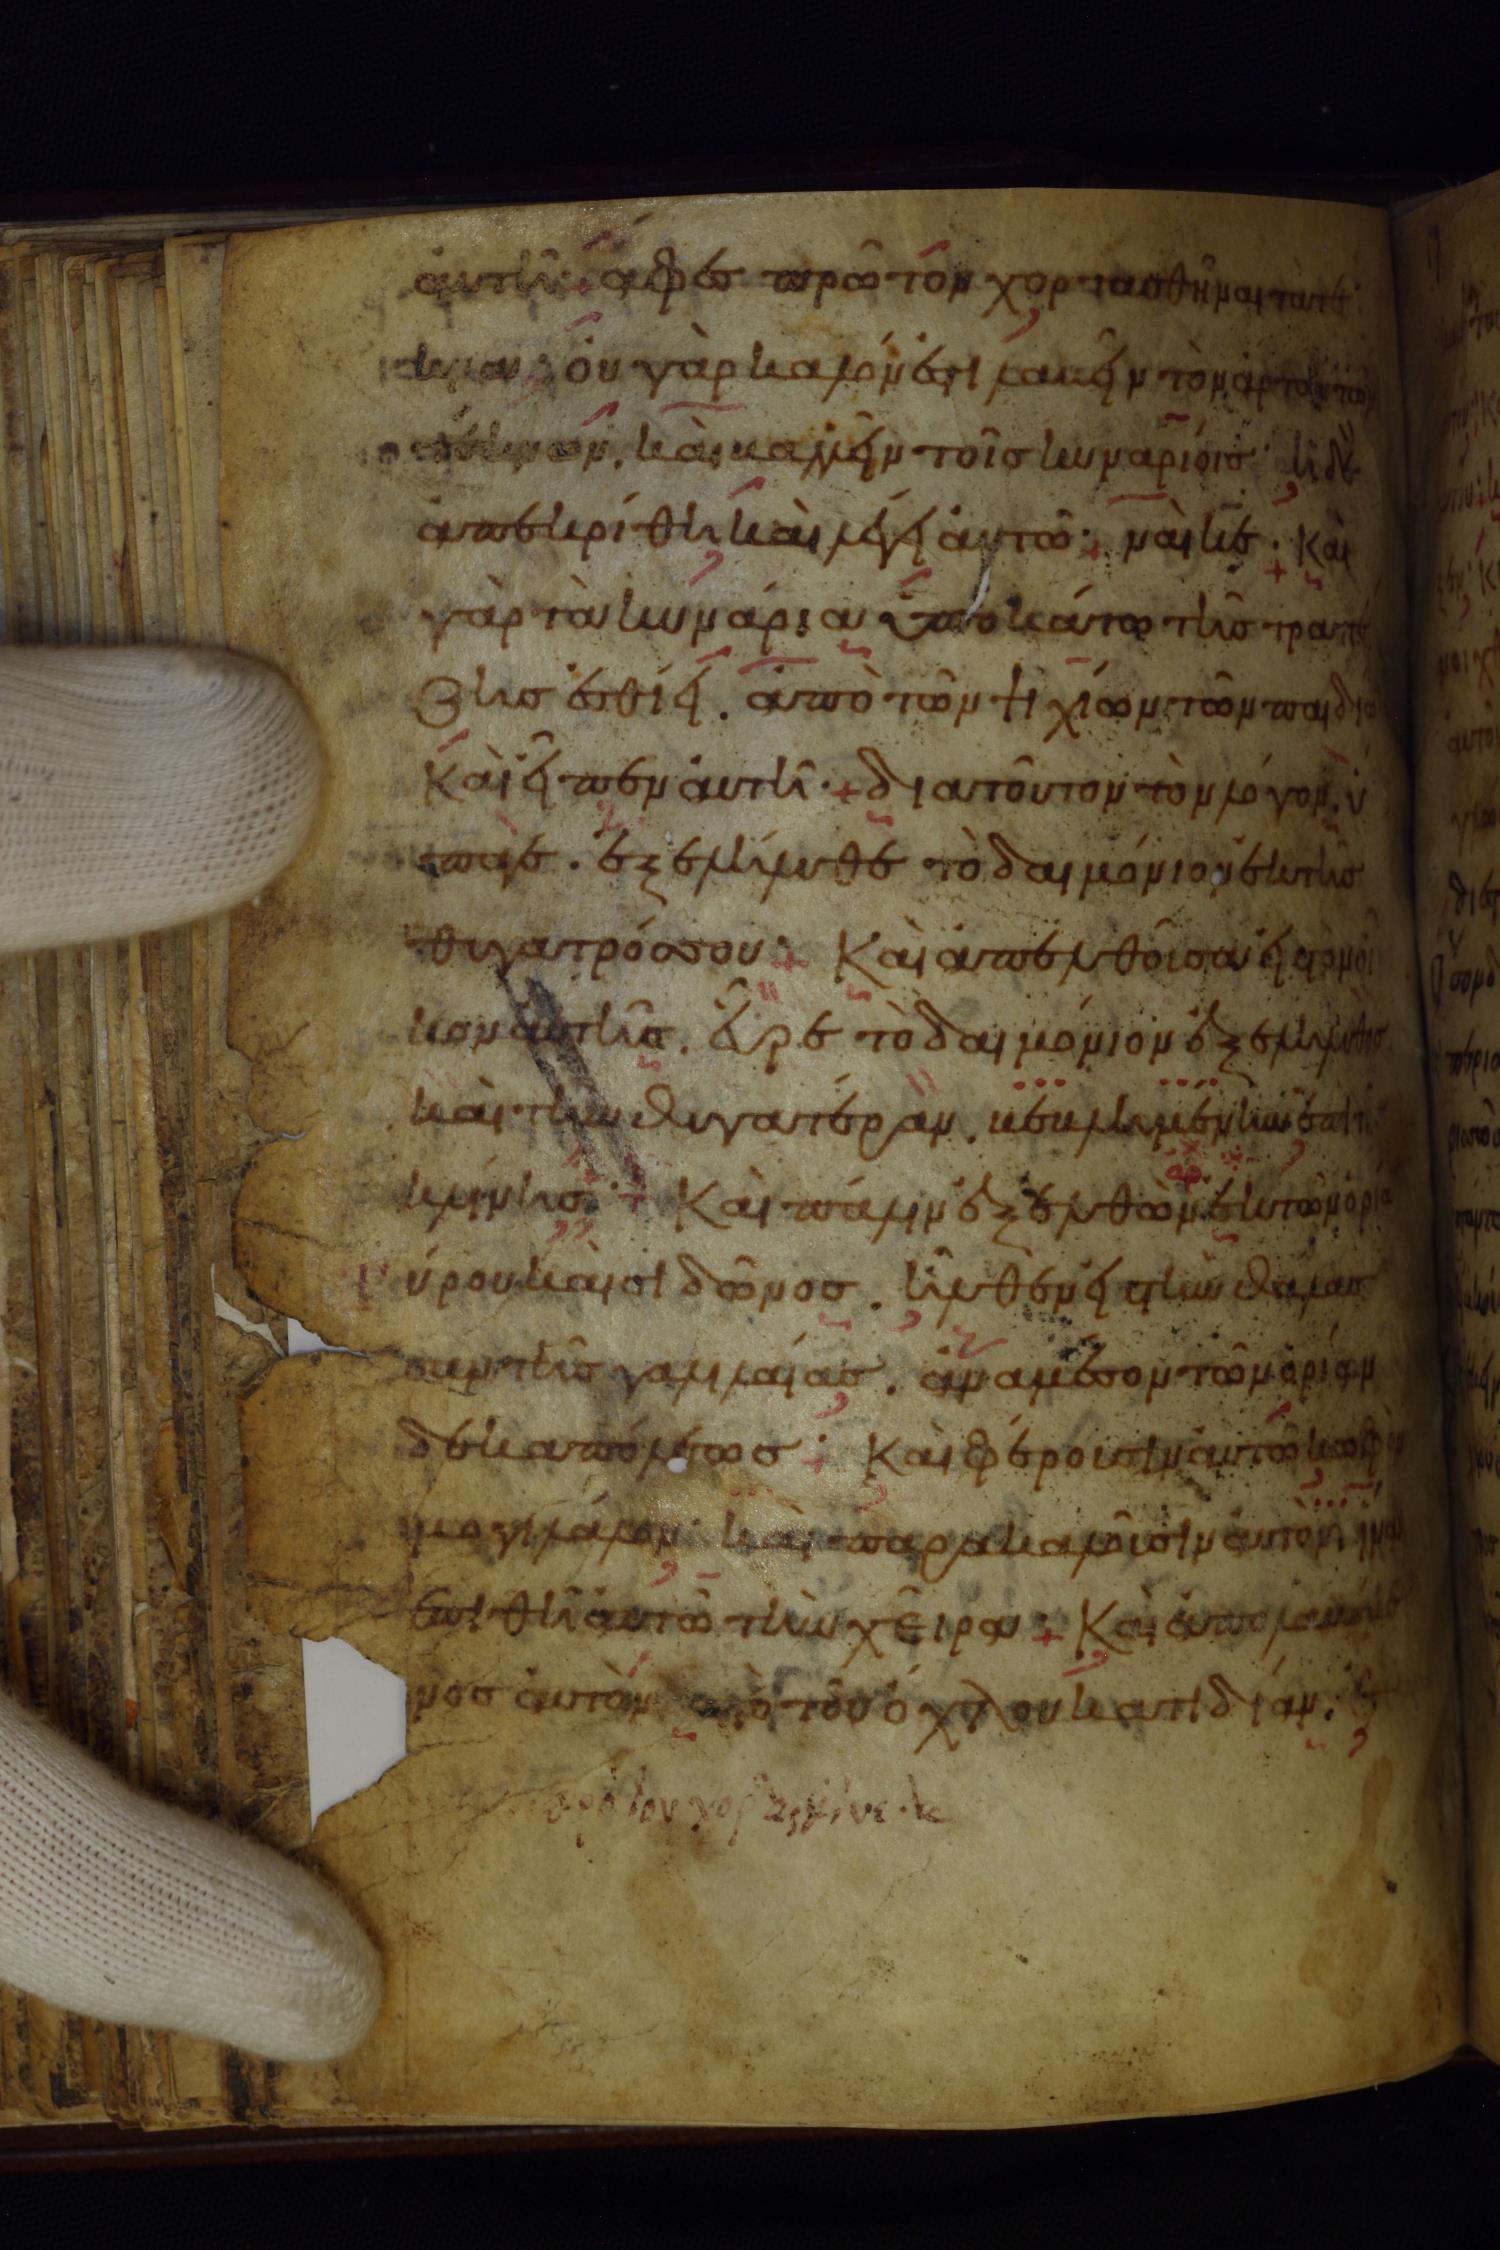 ἀυτῆ· ἄφες πρῶτον χορτασθῆναι τὰ τέ
κνα· ὀυ γὰρ καλόν ἐστι λαβεῖν τὸν ἄρτον τῶν
τέκνων. καὶ βαλεῖν τοῖς κυναρίοις· ἡ δὲ
ἀπεκρίθη καὶ λέγει ἀυτῶ· ναὶ κε· καὶ
γὰρ τὰ κυνάρια ὑποκάτω τῆς τραπέ
ζης ἐσθίει. ἀπὸ τῶν ψιχίων τῶν παιδίω
Καὶ εἶπεν ἀυτῆ·+ διὰ τοῦτον τὸν λόγον ὑ
παγε· ἐξελήλυθε τὸ δαιμόνιον ἐκ τῆς
θυγατρόσσου+ Καὶ ἀπελθοῦσα εἰς τὸν οἶ
κον ἀυτῆς. εὗρε τὸ δαιμόνιον ἐξεληλυθὸς
καὶ τὴν θυγατέραν. βεβλημένην ἐπὶ τῆς
κλίνης·+ Καὶ πάλιν ἐξελθὼν ἐκ τῶν ὁρίω
ύρου καὶ σιδῶνος. ἦλθεν εἰς τὴν θάλασ
σαν τῆς γαλιλαίας. ἀναμέσον τῶν ὁρίων
δεκαπόλεως+ Καὶ φέρουσιν ἀυτῶ κωφὸν
μογιλάλον· καὶ παρακαλοῦσιν ἀυτὸν ἵνα
ἐπιθῆ ἀυτῶ τὴν χεῖρα·+ Καὶ ἀπολαβόμε
νος ἀυτὸν ἀπὸ τοῦ ὄχλου κατιδίαν.